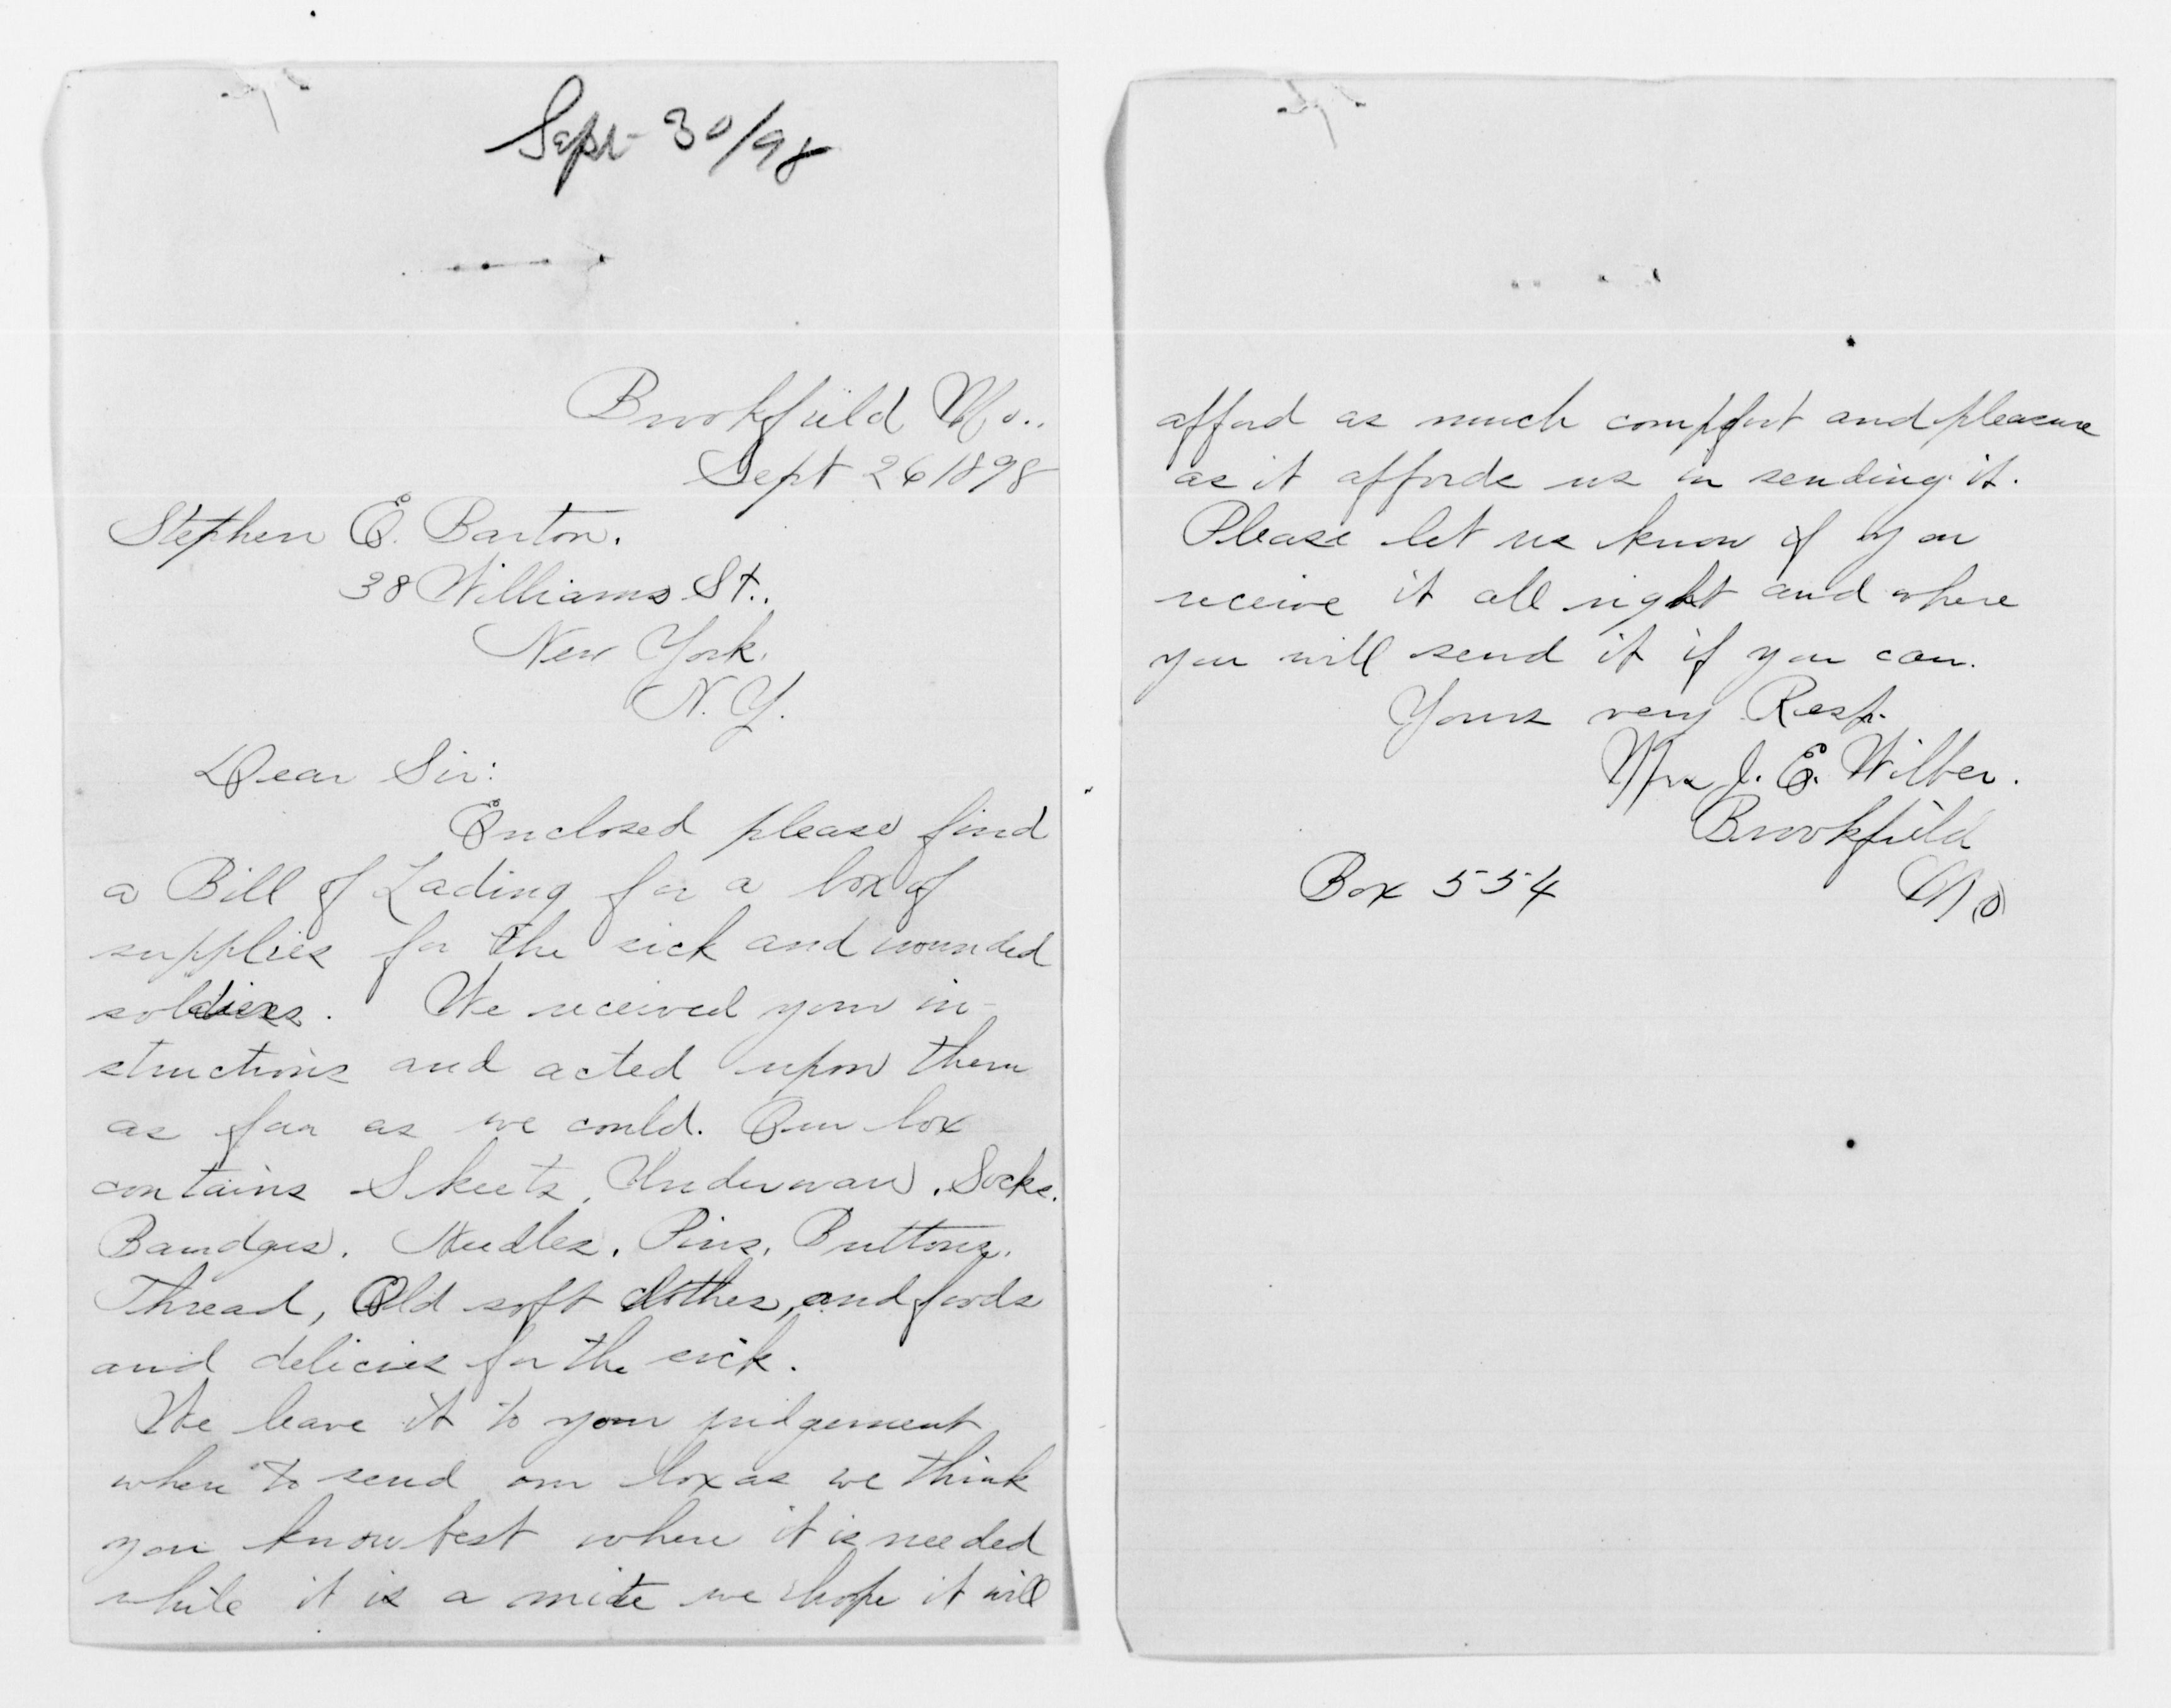 Sept 30/98
Brookfield Mo..
Sept 26 1898
Stephen E. Barton.
38 Williams St..
New York.
N. Y.
Dear Sir:
Enclosed please find
a Bill of Lading for a box of
supplies for the sick and wounded
soldiers. We received your in-
structions and acted upon them
as far as we could. Our box
contains Sheets, Underware, Socks.
Bandges. Needles, Pins, Buttons.
Thread, Old soft clothes, and foods
and delicies for the sick.
We leave it to your judgement
where to send our box as we think
you know best where it is needed
while it is a mite we hope it will
afford as much comfort and pleasure
as it affords us in sending it.
Please let us know if you
receive it all right and where
you will send it if you can.
Yours very Resp.
Mrs J. E. Wilber.
Brookfield
Box 554 Mo